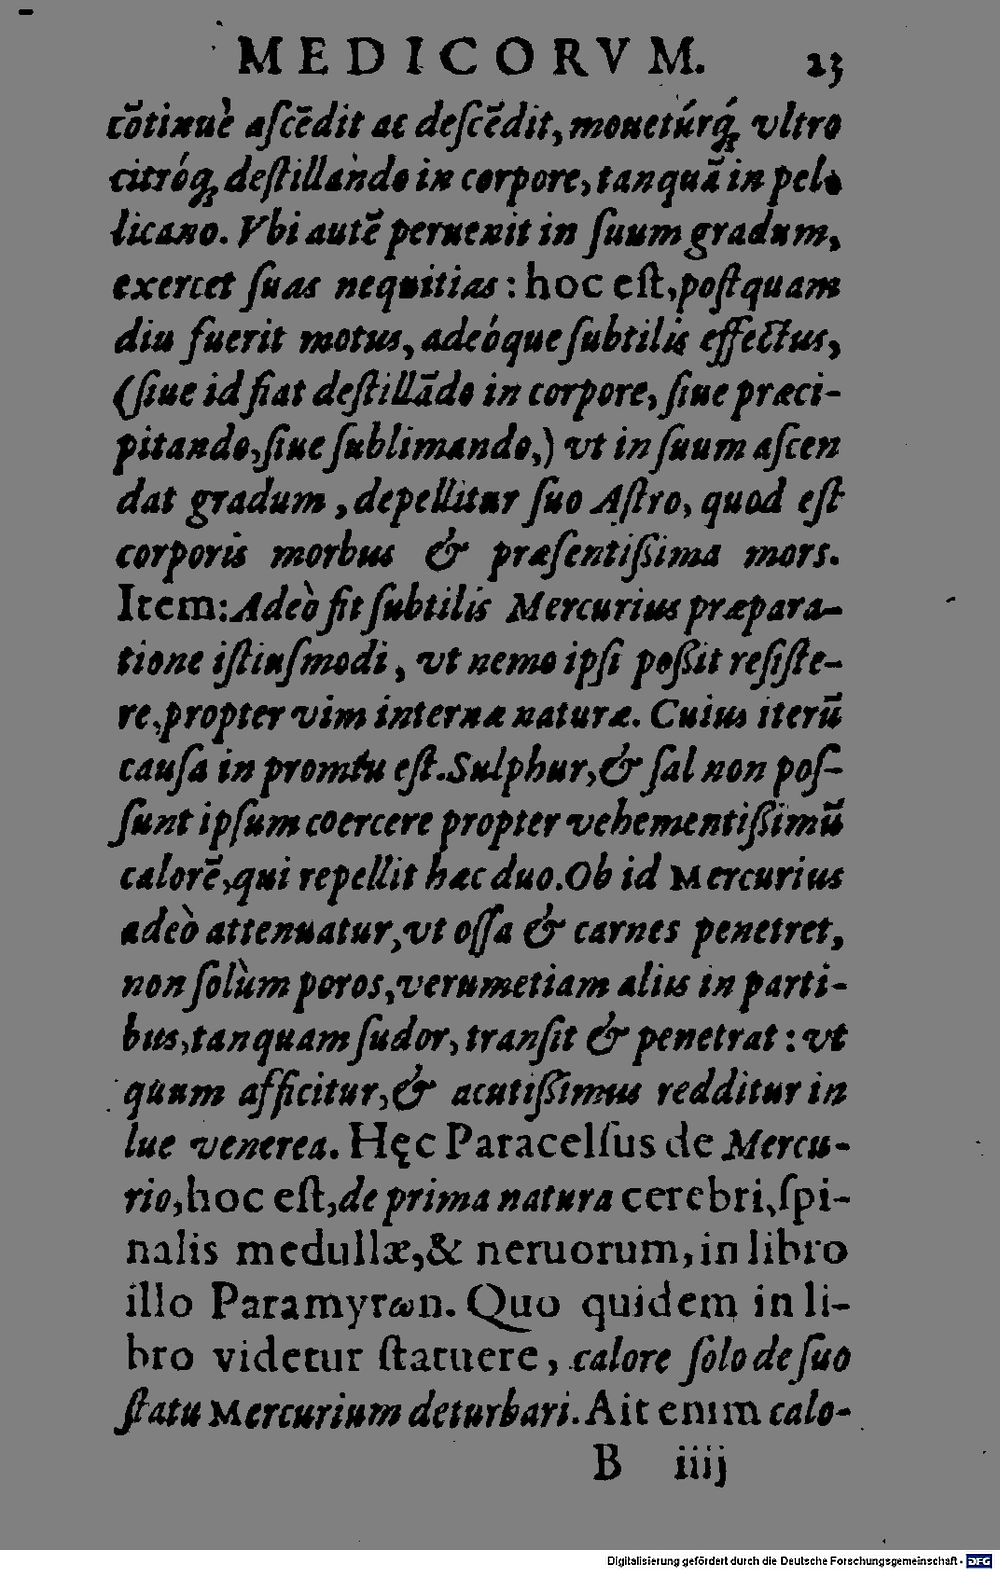 MEDICORVM. 23
cõtinuè aſcẽdit ac deſcẽdit, mouetúrq́ꝫ vltro
citróqꝫ deſtillàndo in corpore, tanquã in pel-
licano. Vbi autẽ peruenit in ſuum gradum,
exercet ſuas nequitias: hoc eſt, poſtquam
diu fuerit motus, adeóque ſubtilis effectus,
(ſiue id fiat deſtillãdo in corpore, ſiue præci-
pitando, ſiue ſublimando,) vt in ſuum aſcen
dat gradum, depellitur ſuo Aſtro, quod eſt
corporis morbus & præſentißima mors.
Item: Adeò fit ſubtilis Mercurius præpara-
tione iſtiuſmodi, vt nemo ipſi poßit reſiſte-
re, propter vim internæ naturæ. Cuius iterũ
cauſa in promtu eſt. Sulphur, & ſal non poſ-
ſunt ipſum coercere propter vehementißimũ
calorẽ, qui repellit hæc duo. Ob id Mercurius
adeò attenuatur, vt oſſa & carnes penetret,
non ſolùm poros, verumetiam aliis in parti-
bus, tanquam ſudor, tranſit & penetrat: vt
quum afficitur, & acutißimus redditur in
lue venerea. Hęc Paracelſus de Mercu-
rio, hoc eſt, de prima natura cerebri, ſpi-
nalis medullæ, & neruorum, in libro
illo Paramyrωn. Quo quidem in li-
bro videtur ſtatuere, calore ſolo de ſuo
ſtatu Mercurium deturbari. Ait enim calo-
B iiij
Digitalisierung gefördert durch die Deutsche Forschungsgemeinschaft - DFG